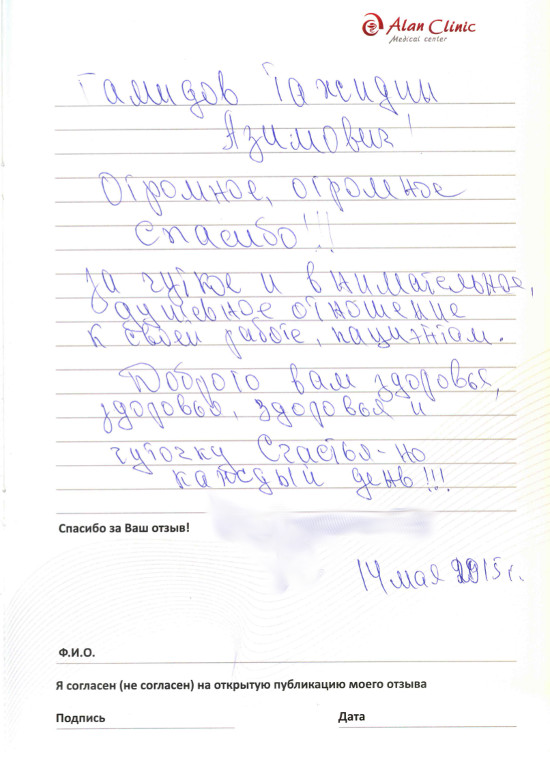 Alan Clinic
Medical center
Гамидов Тажидин
Азимович!
Огромное, огромное
Спасибо!!!
За чуткое и внимательное,
душевное отношение
к своей работе, пациэнтам.
Доброго вам здоровья,
здоровья, здоровья и
чуточку Счастья - но
каждый день!!!
Спасибо за Ваш отзыв!
14 мая 2015 г.
Ф.И.О.
Я согласен (не согласен) на открытую публикацию моего отзыва
Подпись Дата